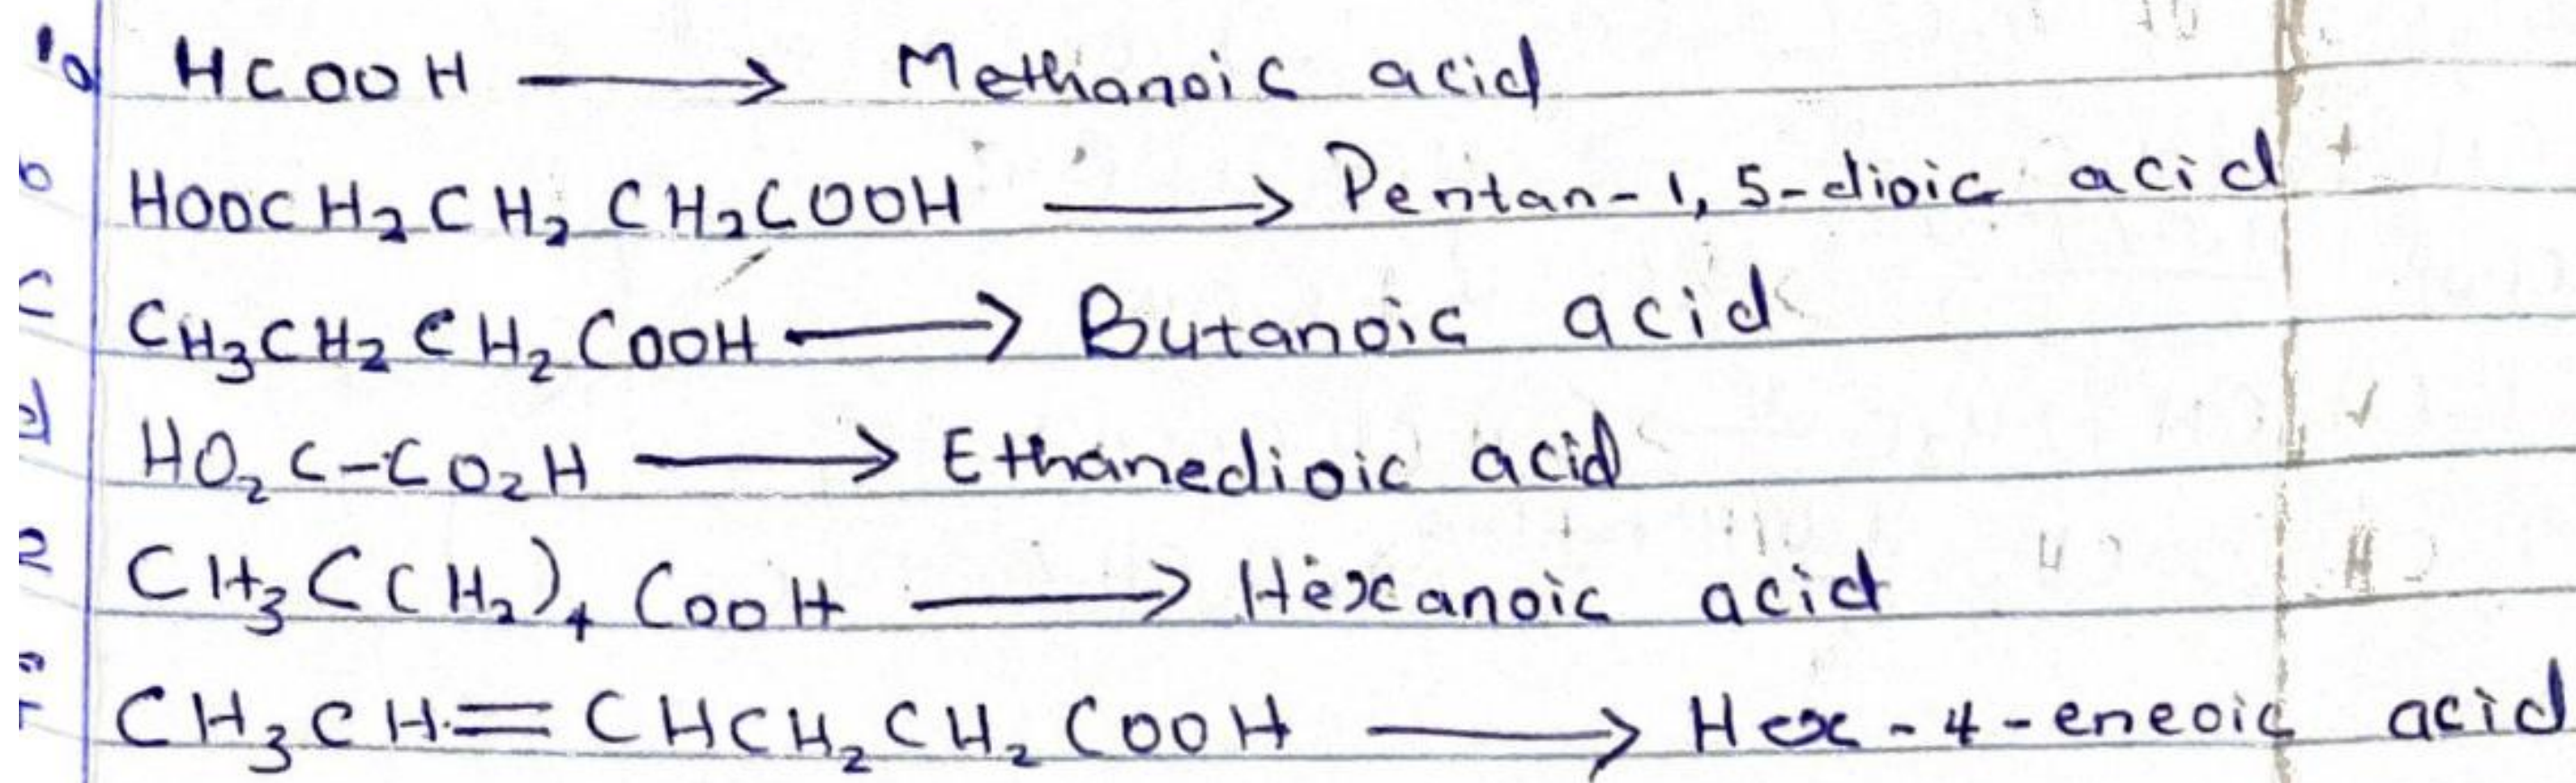 1a HCOOH → Methanoic acid
b HOOCH₂CH₂CH₂COOH → Pentan-1, 5-dioic acid
c CH₃CH₂CH₂COOH → Butanoic acid
d HO₂C-CO₂H → Ethanedioic acid
e CH₃(CH₂)₄COOH → Hexanoic acid
CH₃CH=CHCH₂CH₂COOH → Hex-4-eneoic acid